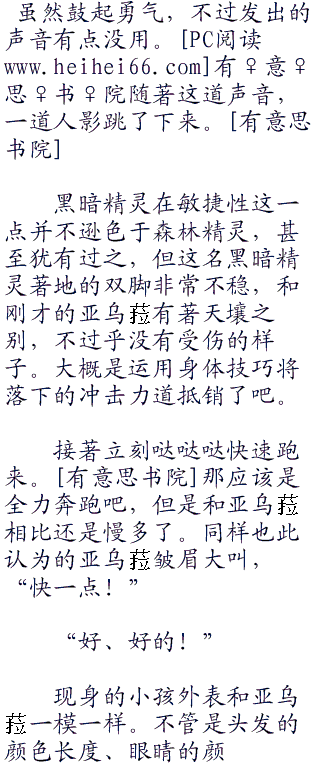 虽然鼓起勇气，不过发出的
声音有点没用。[PC阅读
www.heihei66.com]有♀意♀
思♀书♀院随著这道声音，
一道人影跳了下来。[有意思
书院]
黑暗精灵在敏捷性这一
点并不逊色于森林精灵，甚
至犹有过之，但这名黑暗精
灵著地的双脚非常不稳，和
刚才的亚乌菈有著天壤之
别，不过乎没有受伤的样
子。大概是运用身体技巧将
落下的冲击力道抵销了吧。
接著立刻哒哒哒快速跑
来。[有意思书院]那应该是
全力奔跑吧，但是和亚乌菈
相比还是慢多了。同样也此
认为的亚乌菈皱眉大叫，
“快一点！”
“好、好的！”
现身的小孩外表和亚乌
菈一模一样。不管是头发的
颜色长度、眼睛的颜